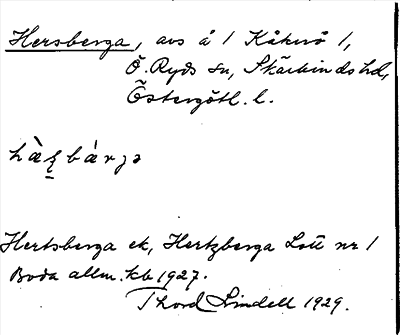 Hersberga, avs å 1 Kåkerö 1,
Ö. Ryds sn, Skärkinds hd,
Östergötl. l.
hæ̀ʂbárjə
Hertsberga ek, Hertzberga Lott nr 1
Boda allm. kb 1927.
Thord Lindell 1929.